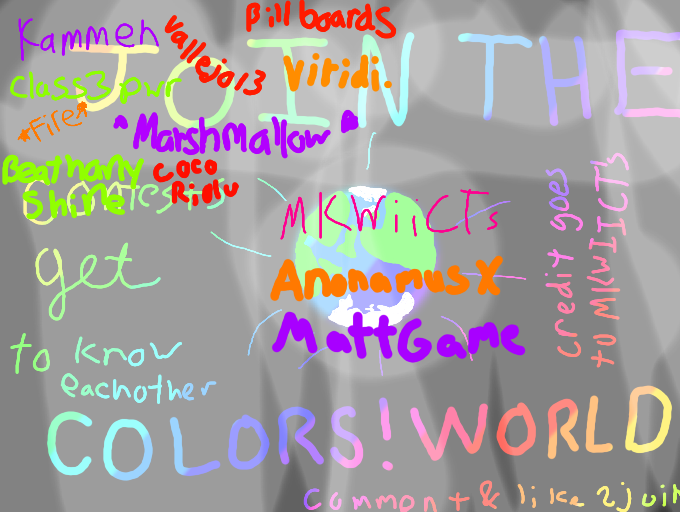 Billboards
Kammeh
Vallejo13
JOIN THE
Class3pwr
Viridi.
*Fire*
^Marshmallow^
Beathany
Shine
Coco
contests
MKWiiCTs
get
AnonamusX
credit goes
to MKWIICTs
MattGame
to know
eachother
COLORS! WORLD
common + & like 2 join